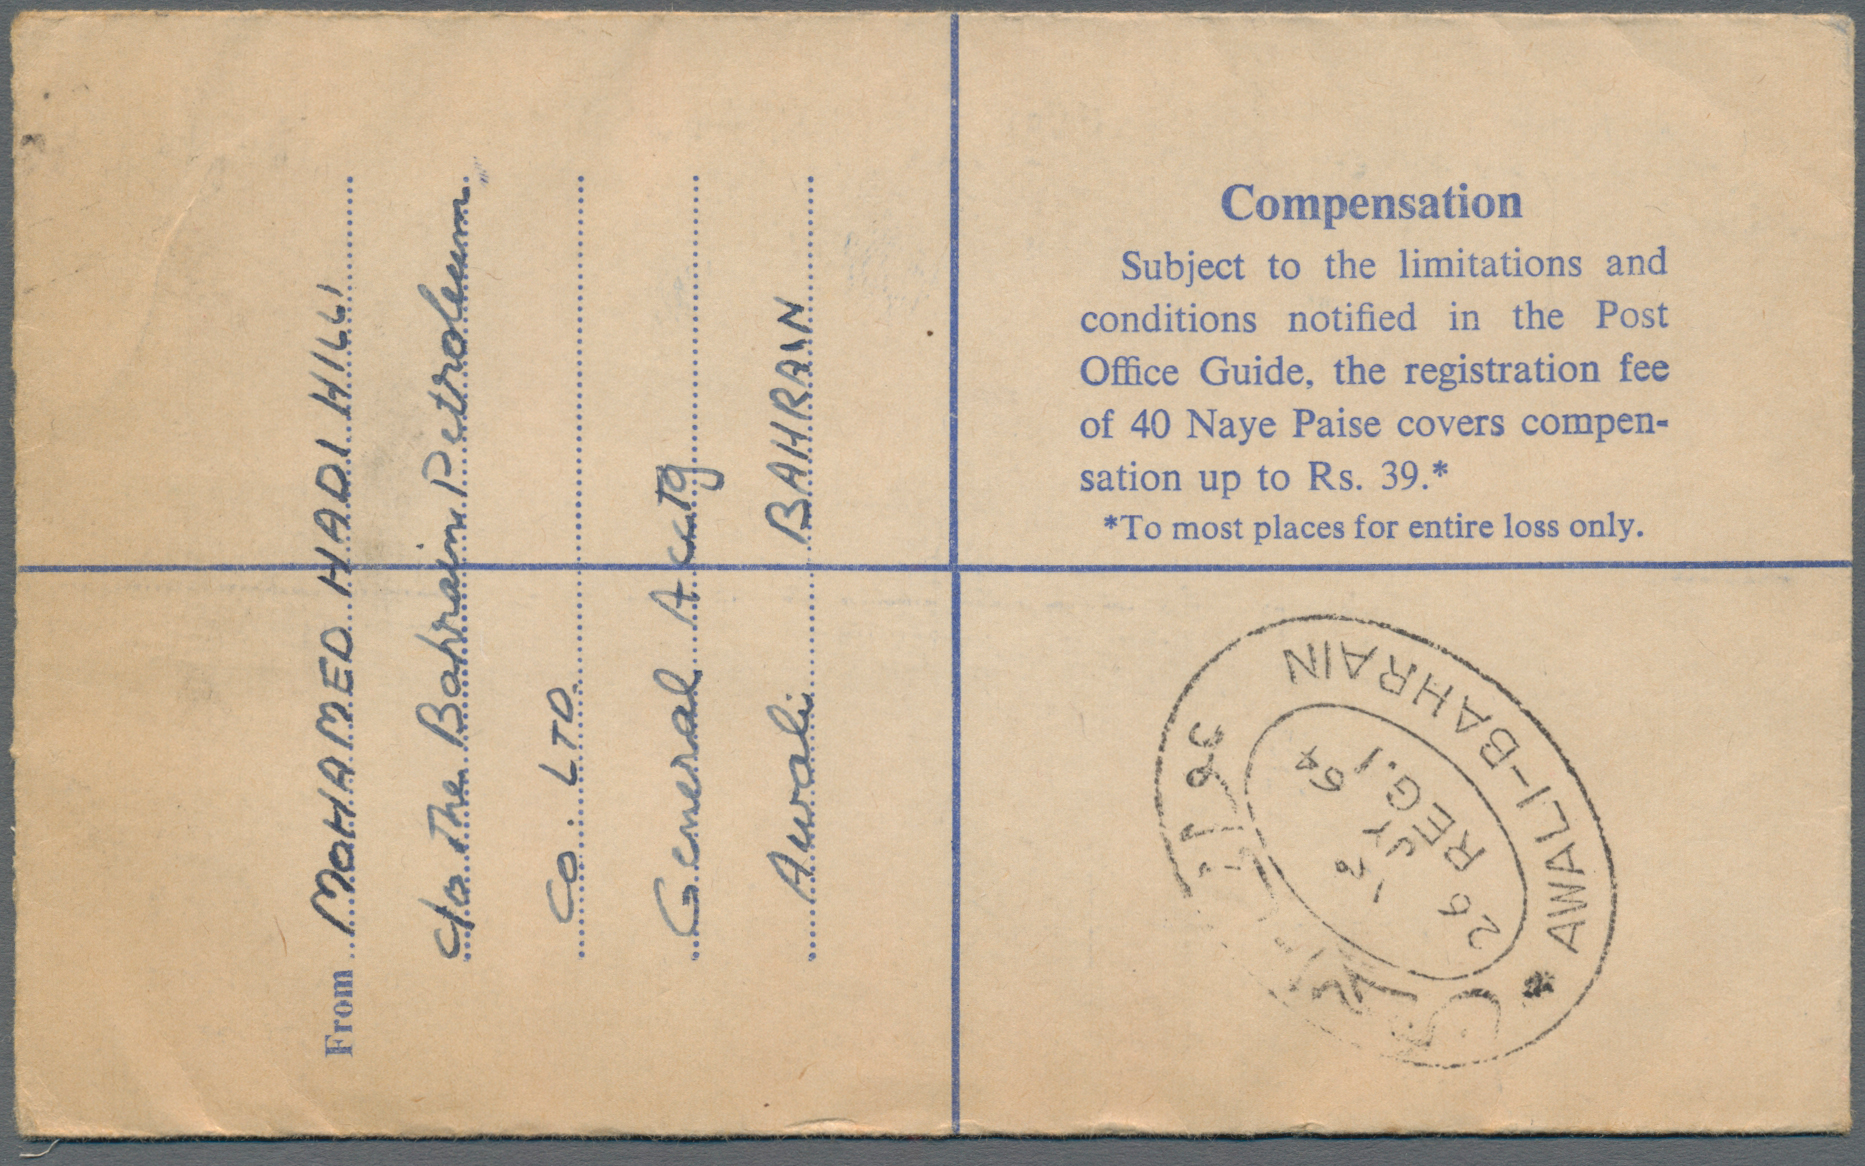 From MOHAMED HADI HILLI
c/o The Bahrain Petroleum
Co. LTD.
General Acctg
Awali BAHRAIN
Compensation
Subject to the limitations and
conditions notified in the Post
Office Guide, the registration fee
of 40 Naye Paise covers compen-
sation up to Rs. 39.*
*To most places for entire loss only.
* AWALI-BAHRAIN
REG.1
JY 64